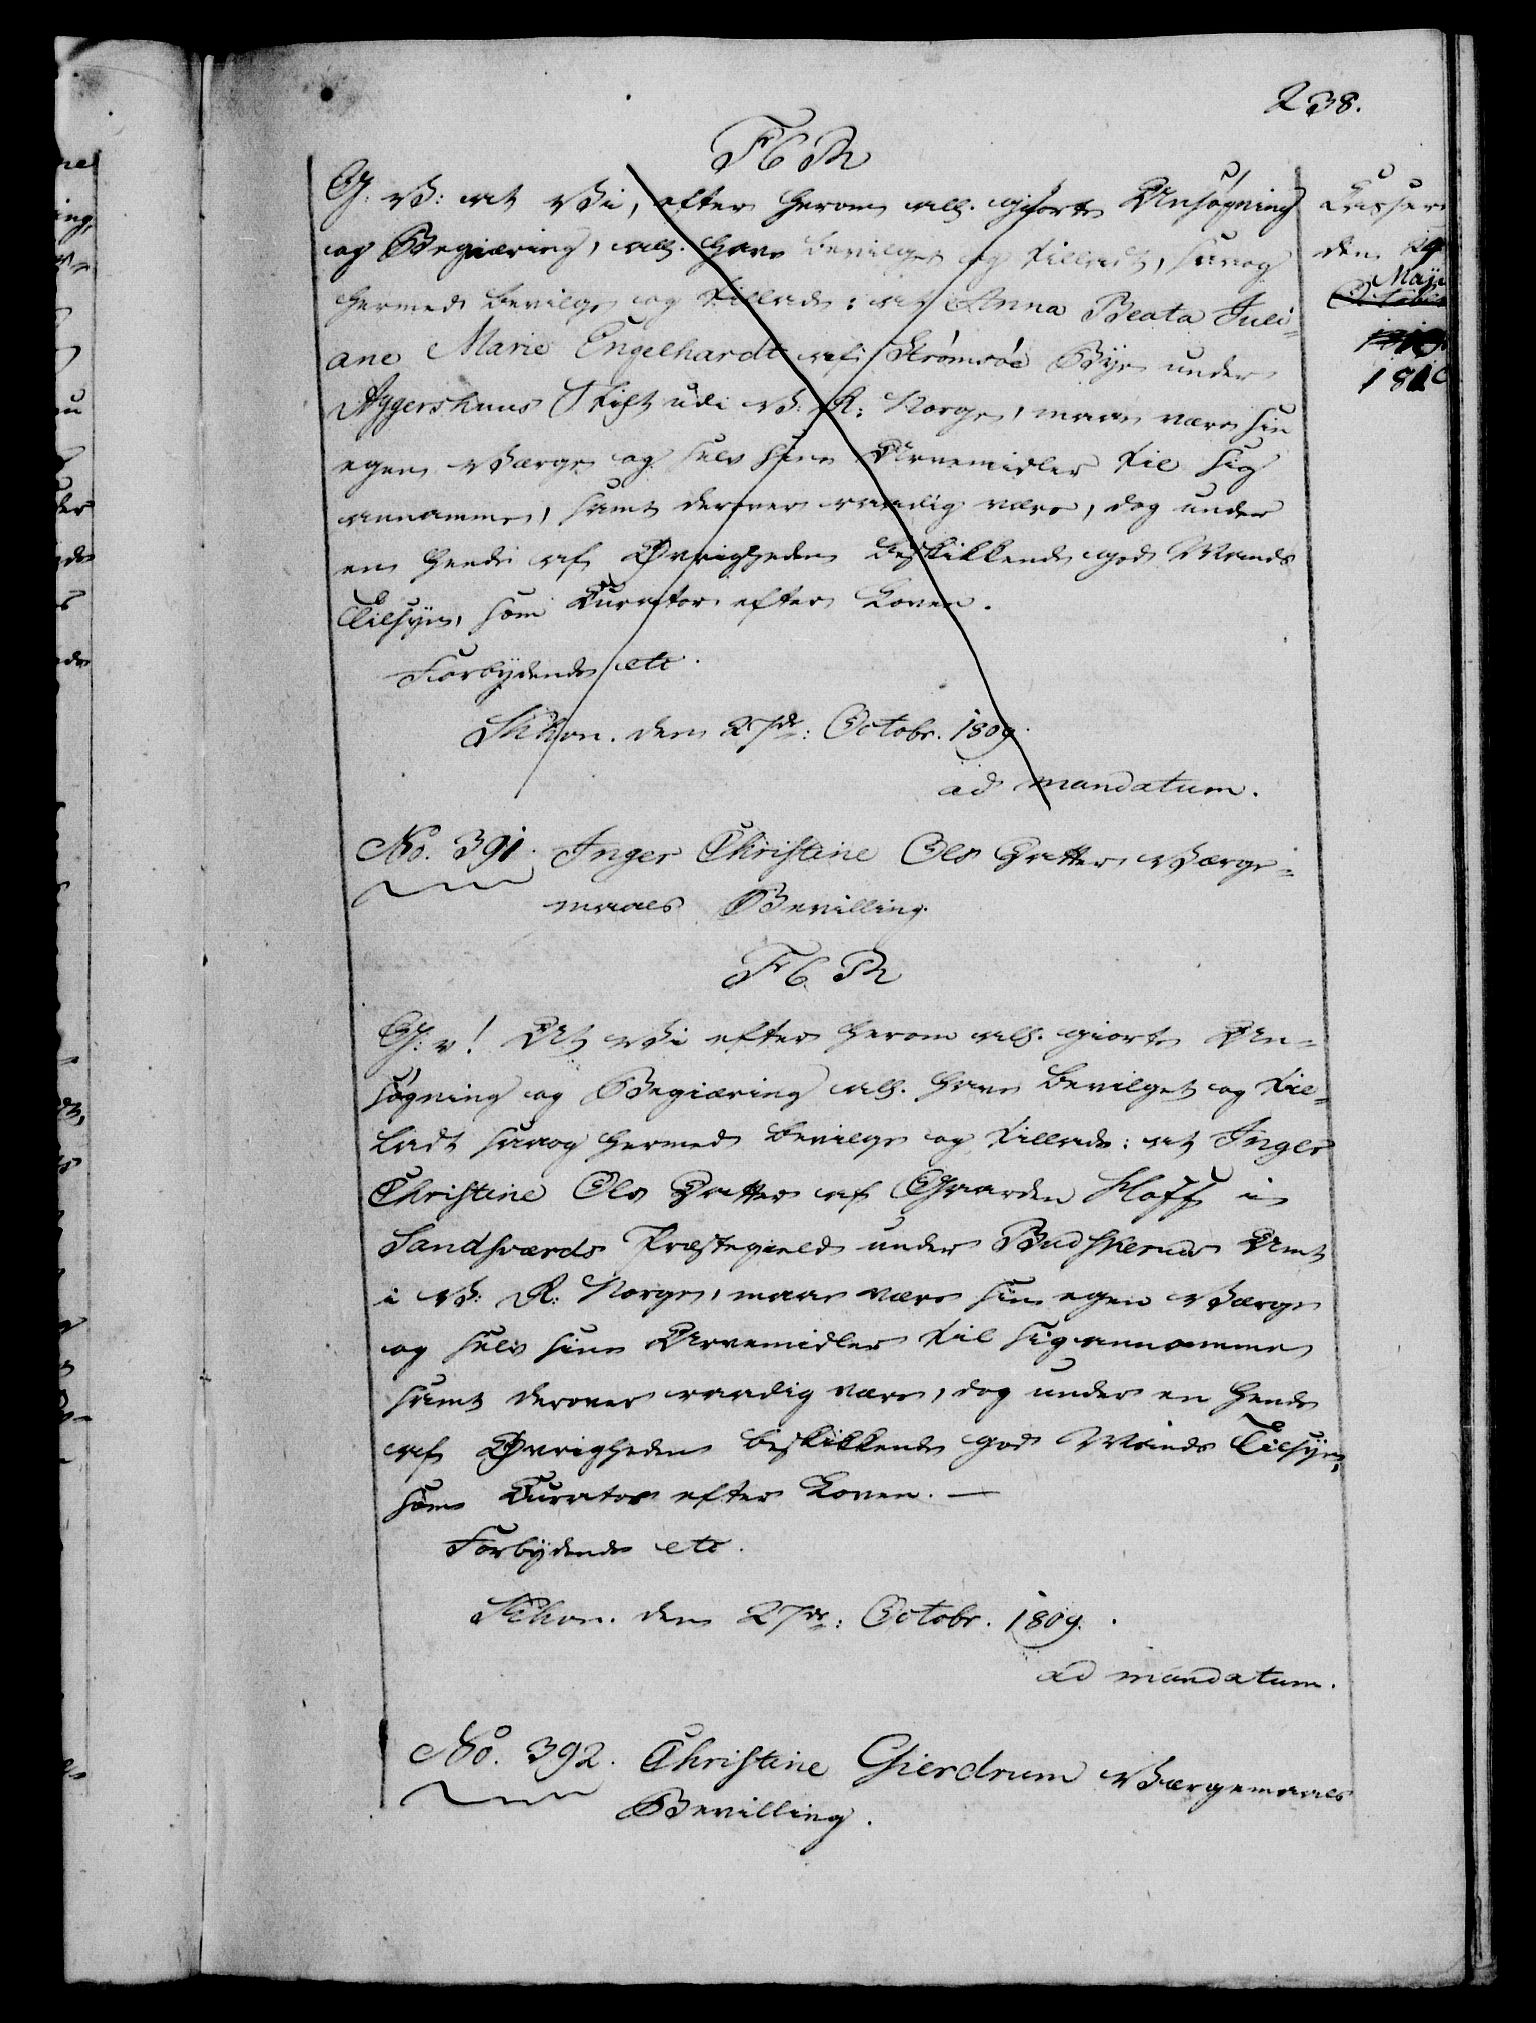 238.
F6 R
G: V: at Vi, efter herom all. giorte Ansøgning
og Begiæring, all. have bevilget og tilladt, saaog
hermed bevilge og tillade: at Anna Beata Juli-
ane Marie Engelhardt af Strømsøe Bye under
Aggershuus Stift udi V: R: Norge, maae være sin
egen Værge og selv sine Arvemidler til sig
annamme, samt derover raadig være, dog under
en hende af Øvrigheden beskikkende god Mands
Tilsyn, som Curator efter Loven.
Forbydende etc.
Kbhvn. den 27de: Octobr. 1809.
ad mandatum.
Casser
den 19
May
1810
No. 391. Inger Christine Ols Datters Værge-
maals Bevilling.
F6 R
G: v! At Vi efter herom all. giorte An-
søgning og Begiæring all. have bevilget og til-
ladt saaog hermed bevilge og tillade: at Inger
Christine Ols Datter af Gaarden Hoff i
Sandsværds Præstegield under Budskeruds Amt
i V: R: Norge, maae være sin egen Værge
og selv sine Arvemidler til sig annamme
samt derover raadig være, dog under en hende
af Øvrigheden beskikkende god Mands Tilsyn,
som Curator efter Loven. —
Forbydende etc.
Kbhvn. den 27de: Octobr. 1809.
ad mandatum.
No. 392. Christine Gierdrum Værgemaals
Bevilling.